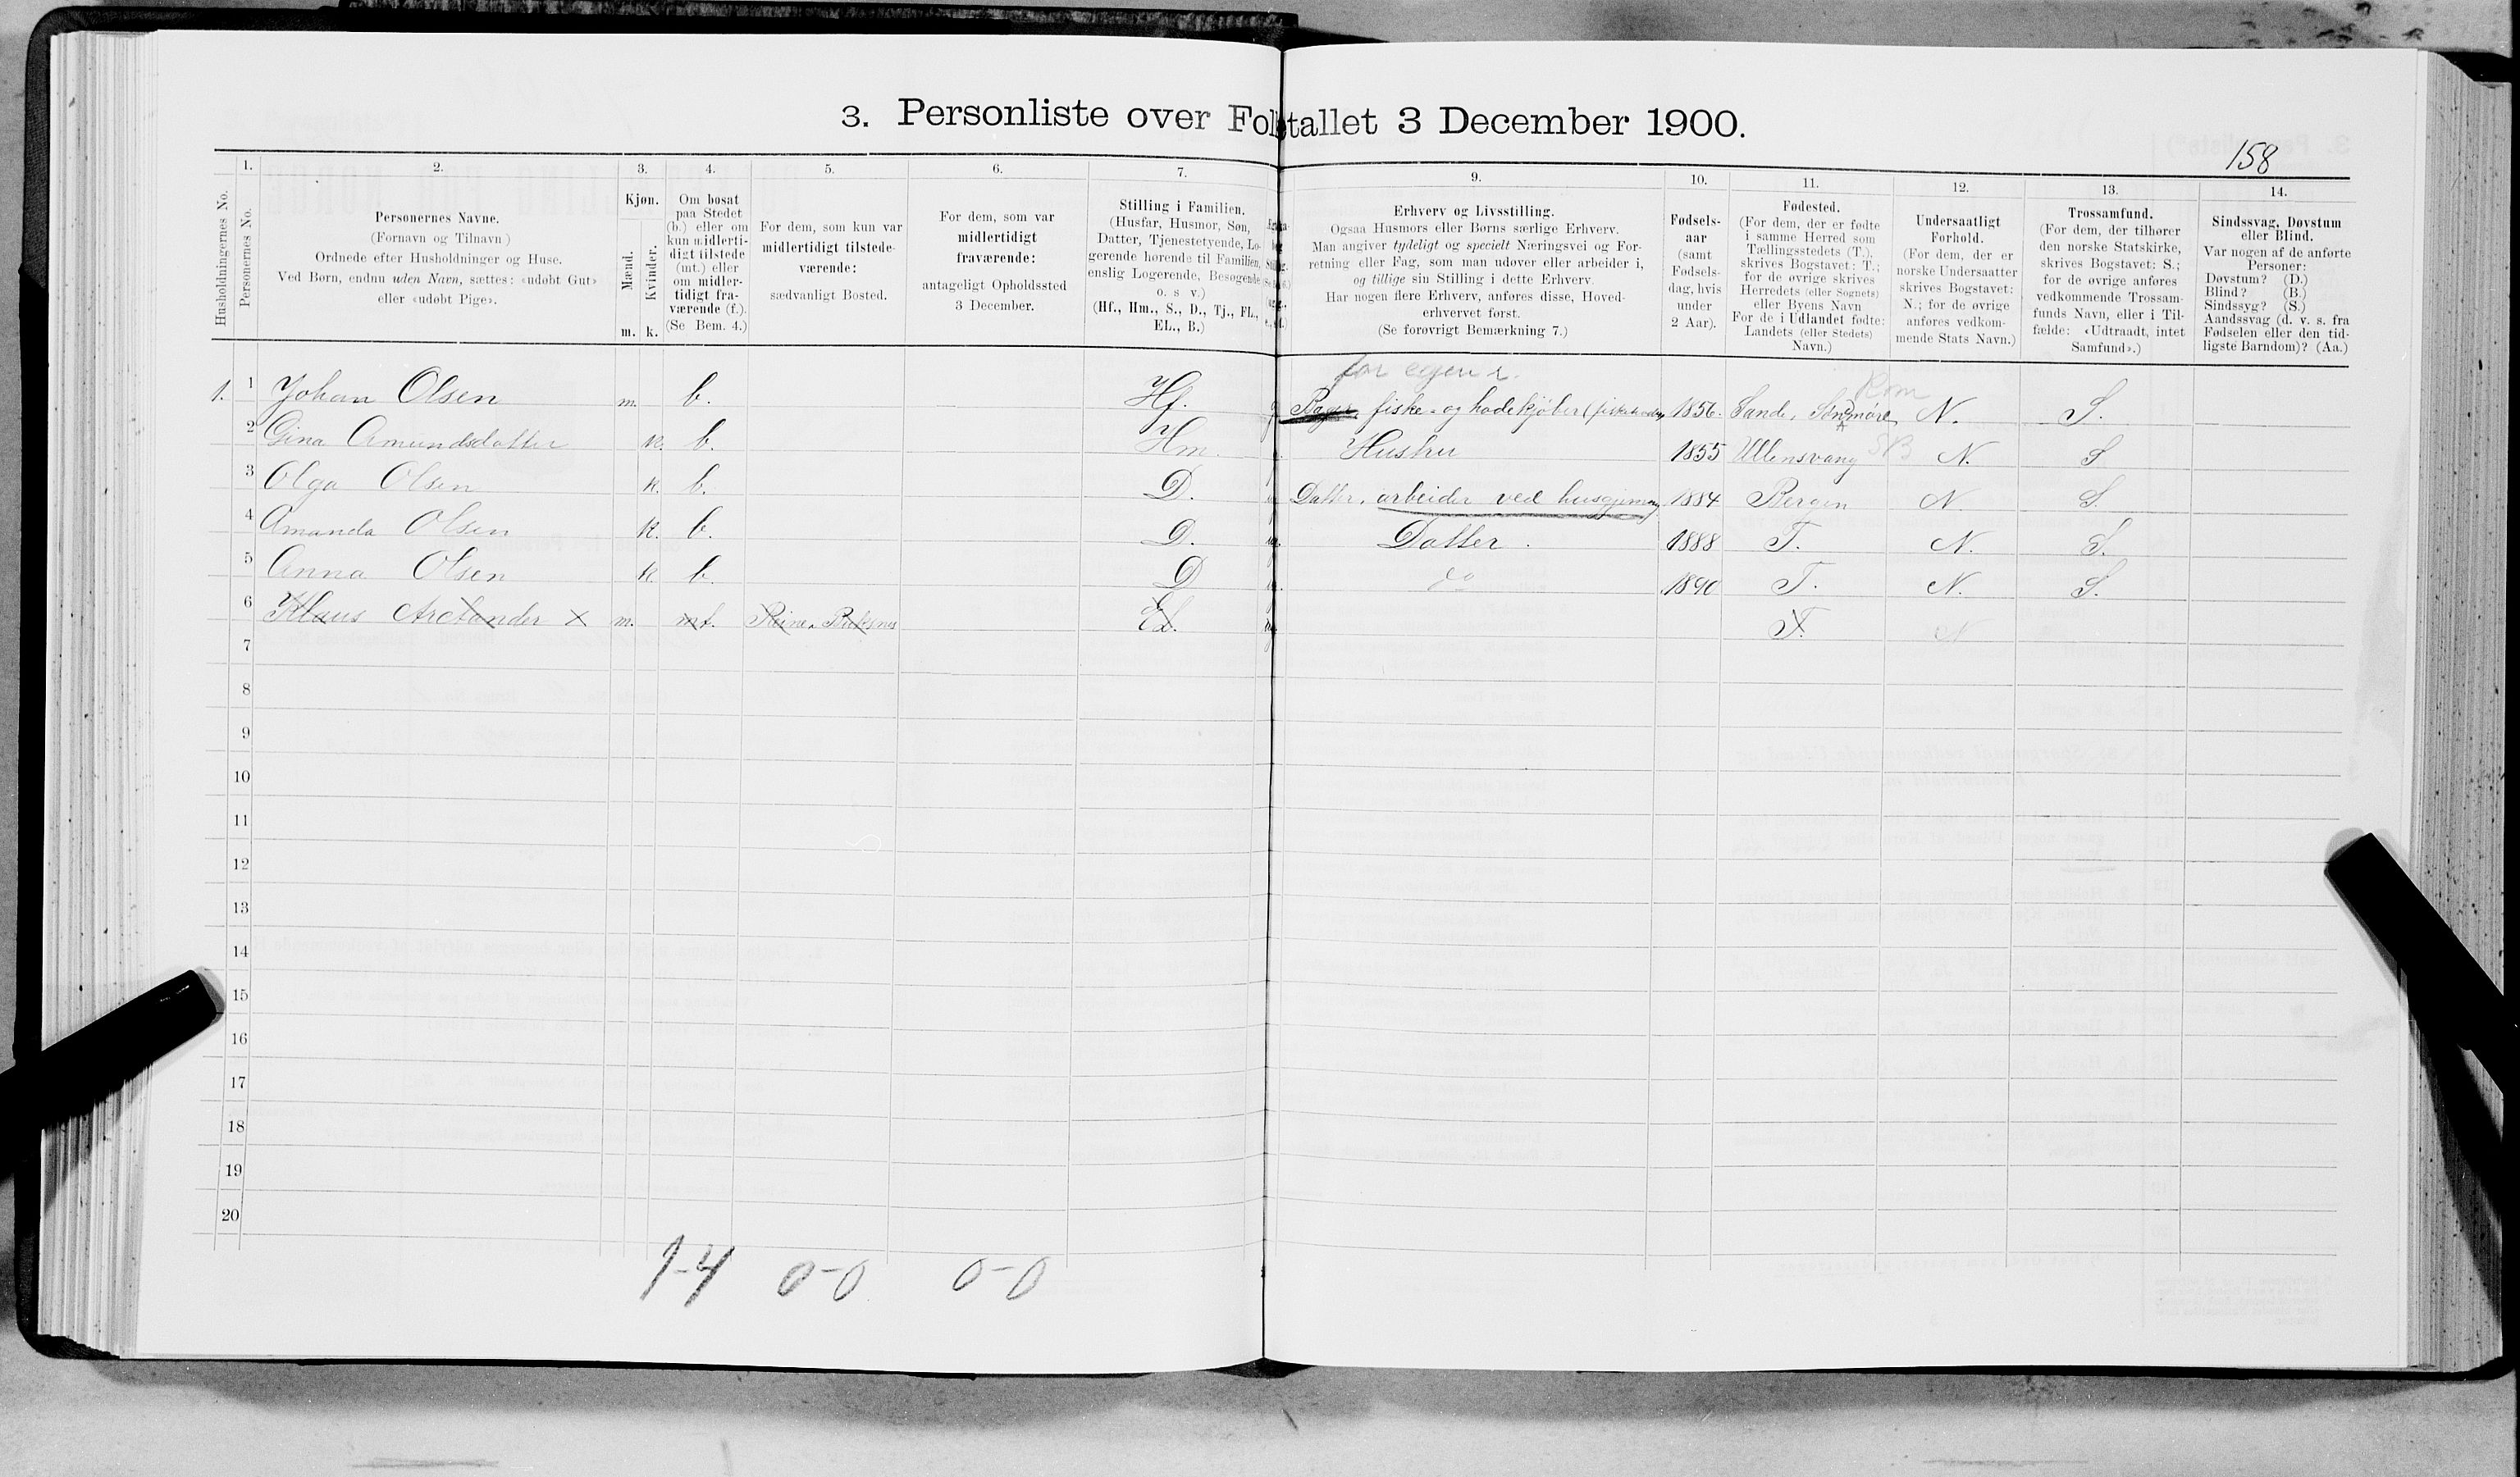 3. Personliste over Folketallet 3 December 1900.
158
1. 2. 3. 4. 5. 6. 7. 9. 10. 11. 12. 13. 14.
Husholdningernes No.
Personernes No.
Personernes Navne.
(Fornavn og Tilnavn)
Ordnede efter Husholdninger og Huse.
Ved Børn, endnu uden Navn, sættes: «udøbt Gut»
eller «udøbt Pige».
Kjøn.
Mænd.
Kvinder.
m. k.
Om bosat
paa Stedet
(b.) eller om
kun midlerti-
digt tilstede
(mt.) eller
om midler-
tidigt fra-
værende (f.).
(Se Bem. 4.)
For dem, som kun var
midlertidigt tilstede-
værende:
sædvanligt Bosted.
For dem, som var
midlertidigt
fraværende:
antageligt Opholdssted
3 December.
Stilling i Familien.
(Husfar, Husmor, Søn,
Datter, Tjenestetyende, Lo-
gerende hørende til Familien,
enslig Logerende, Besøgende
o. s v.)
(Hf., Hm., S., D., Tj., FL.,
EL., B.)
Erhverv og Livsstilling.
Ogsaa Husmors eller Børns særlige Erhverv.
Man angiver tydeligt og specielt Næringsvei og For-
retning eller Fag, som man udøver eller arbeider i,
og tillige sin Stilling i dette Erhverv.
Har nogen flere Erhverv, anføres disse, Hoved-
erhvervet først.
(Se forøvrigt Bemærkning 7.)
Fødsels-
aar
(samt
Fødsels-
dag, hvis
under
2 Aar).
Fødested.
(For dem, der er fødte
i samme Herred som
Tællingsstedets (T.),
skrives Bogstavet: T.;
for de øvrige skrives
Herredets (eller Sognets)
eller Byens Navn
For de i Udlandet fødte:
Landets (eller Stedets)
Navn.)
Undersaatligt
Forhold.
(For dem, der er
norske Undersaatter
skrives Bogstavet:
N.; for de øvrige
anføres vedkom-
mende Stats Navn.)
Trossamfund.
(For dem, der tilhører
den norske Statskirke,
skrives Bogstavet: S.;
for de øvrige anføres
vedkommende Trossam-
funds Navn, eller i Til-
fælde: «Udtraadt, intet
Samfund».)
Sindssvag, Døvstum
eller Blind.
Var nogen af de anførte
Personer:
Døvstum? (D.)
Blind? (B.)
Sindssyg? (S.)
Aandssvag (d. v. s. fra
Fødselen eller den tid-
ligste Barndom)? (Aa.)
for egen r. Rom
1. 1 Johan Olsen m. b. Hf. fiske- og hodekjøber 1856. Sande, Söndmøre, N. S.
2 Gina Amundsdatter k. b. Hm. Hustru 1855 Ullensvang SB N. S
3 Olga Olsen k. b. D. Datter, arbeider ved husgjerning 1884 Bergen N. S.
4 Amanda Olsen k. b. D. Datter. 1888 T. N. S.
5 Anna Olsen k b. D do 1890 T. N. S.
6 Klaus Arctander X m. mt. Reine. Buksnes EL. T. N
7
8
9
10
11
12
13
14
15
16
17
18
19
20
1-4 0-0 0-0